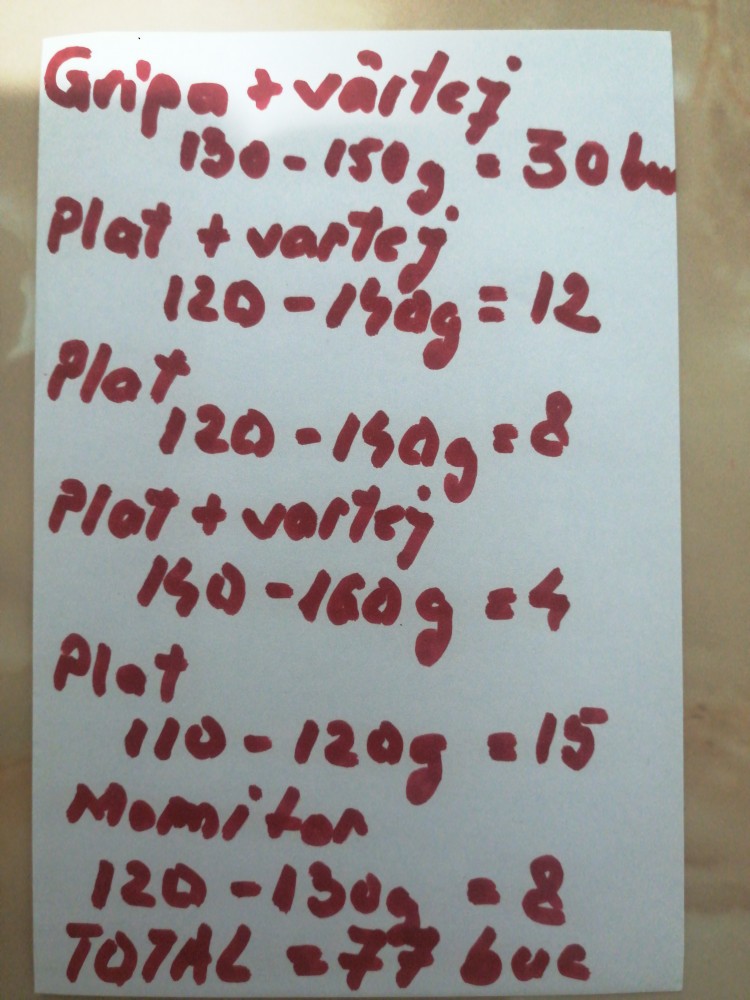 Gripa + vârtej
130 - 150g = 30 buc
Plat + vartej
120 - 140g = 12
Plat
120 - 140g = 8
Plat + vartej
140 - 160g = 4
Plat
110 - 120g = 15
Momitor
120 - 130g = 8
TOTAL = 77 buc